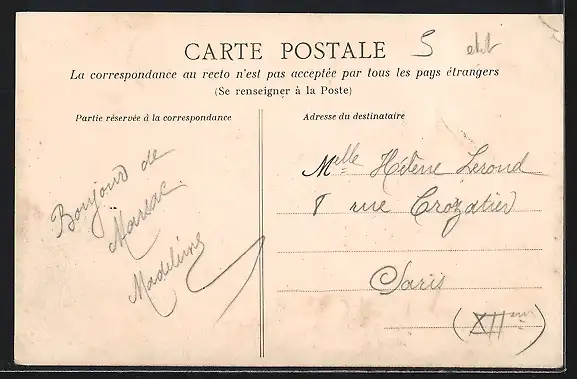 CARTE POSTALE
5
La correspondance au recto n'est pas acceptée par tous les pays étrangers
(Se renseigner à la Poste)
Partie réservée à la correspondance
Bonjour de
Marsac.
Madeleine
Adresse du destinataire
Melle Hélène Leroud
8 rue Crozatier
Paris
(XIIème)